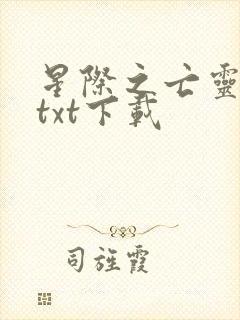 星際之亡靈
txt下載
司旌霞